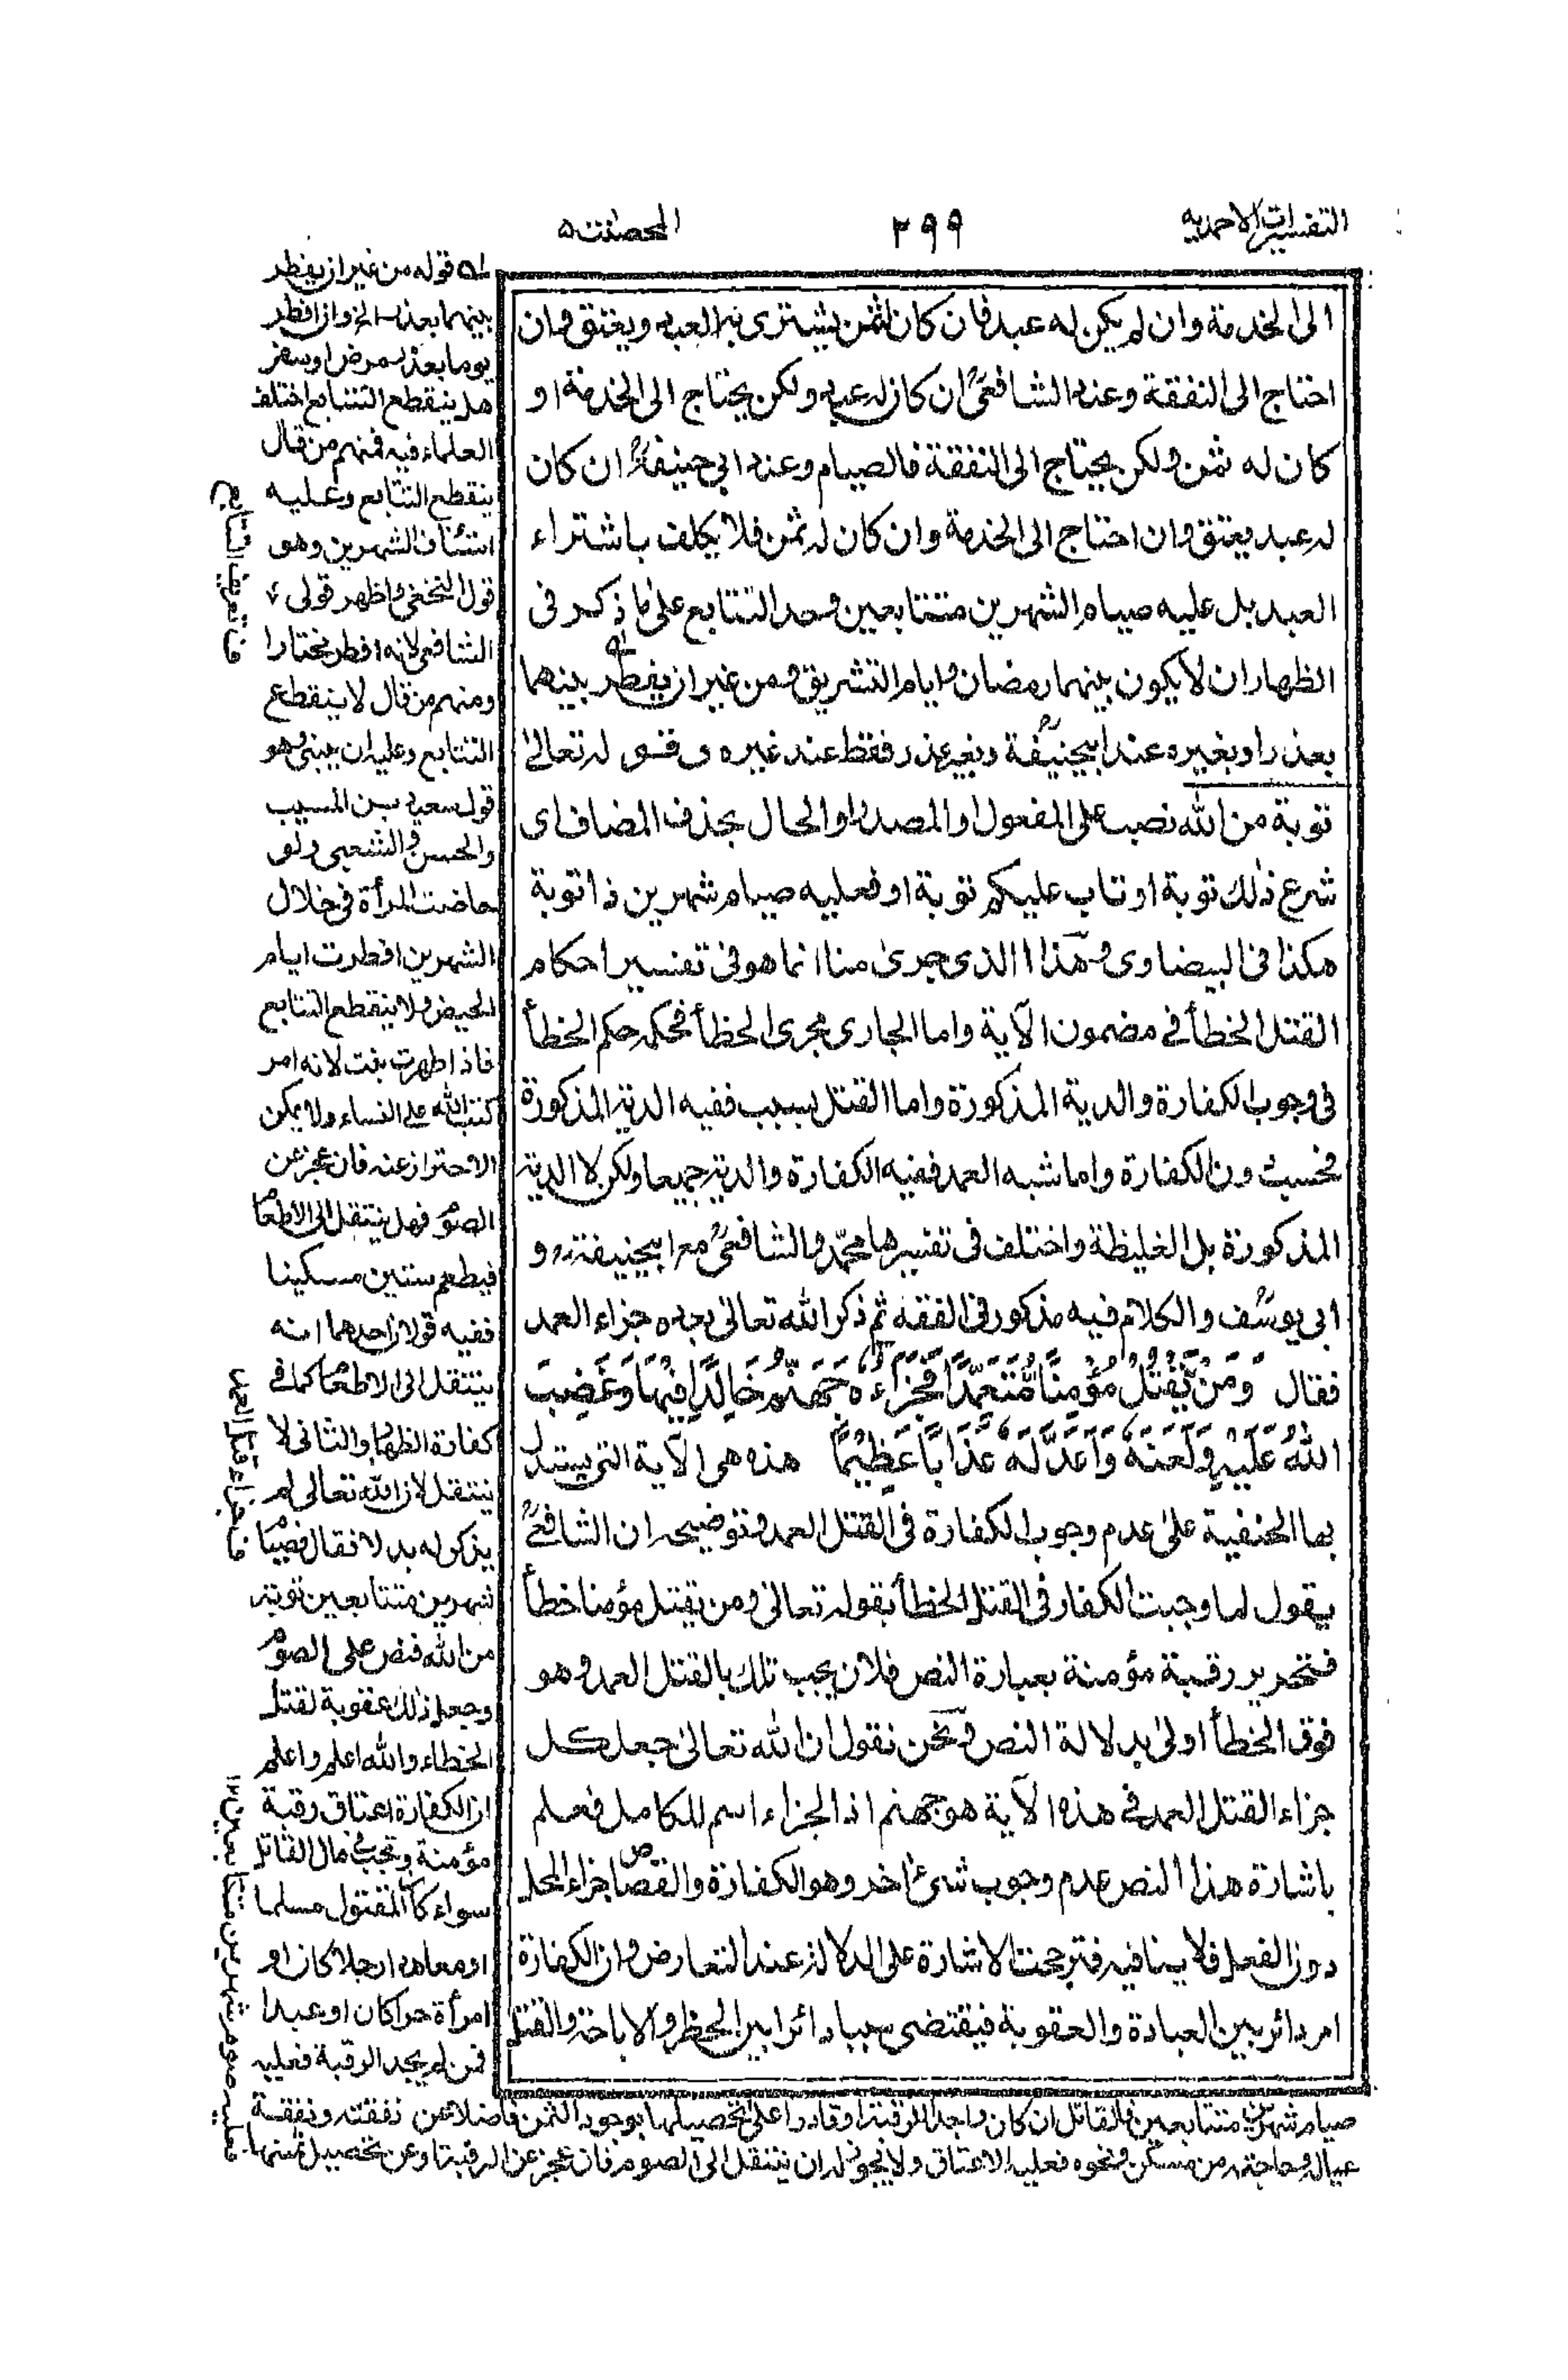 التفسيرات الاحمديه
٢٩٩
المحصنت ٥
الى الخدمة وان لم يكن له عبد فان كان له ثمن يشترى به العبد ويعتق وان
احتاج الى النفقة وعند الشافعىؒ ان كان له عبد ولكن يحتاج الى الخدمة او
كان له ثمن ولكن يحتاج الى النفقة فالصيام وعند ابي حنيفةؒ ان كان
له عبد يعتق وان احتاج الى الخدمة وان كان له ثمن فلا يكلف باشتراء
العبد بل عليه صيام الشهرين متتابعين وحد التتابع على ما ذكر فى
الظهار ان لا يكون بينهما رمضان وايام التشريق ومن غير ان يفطر بينهما
بعذر او بغيره عند ابيحنيفةؒ وبغير عذر فقط عند غيره وقوله تعالىٰ
توبة من الله نصب على المفعول او المصدر او الحال بحذف المضاف اى
شرع ذٰلك توبة او تاب عليكم توبة او فعليه صيام شهرين ذا توبة
هكذا فى البيضاوى وهذا الذى جرىٰ منا انما هو فى تفسير احكام
القتل الخطأ فى مضمون الآية واما الجارى مجرى الخطأ فحكمه حكم الخطأ
فى وجوب الكفارة والدية المذكورة واما القتل بسبب ففيه الدية المذكورة
فحسب دون الكفارة واما شبه العمد ففيه الكفارة والدية جميعا ولكن لا الدية
المذكورة بل الغليظة واختلف فى تفسيرها محمد والشافعىؒ مع ابيحنيفةؒ و
ابى يوسفؒ والكلام فيه مذكور فى الفقه ثم ذكر الله تعالىٰ بعده جزاء العمد
فقال وَمَنْ يَّقْتُلْ مُؤْمِنًا مُّتَعَمِّدًا فَجَزَآءُهٗ جَهَنَّمُ خَالِدًا فِيْهَا وَغَضِبَ
اللهُ عَلَيْهِ وَلَعَنَهٗ وَاَعَدَّ لَهٗ عَذَابًا عَظِيْمًا هذه هى الآية التى يستدل
بها الحنفية علىٰ عدم وجوب الكفارة فى القتل العمد وتوضيحه ان الشافعىؒ
يقول لما وجبت الكفارة فى القتل الخطأ بقوله تعالىٰ ومن يقتل مؤمنا خطأ
فتحرير رقبة مؤمنة بعبارة النص فلان يجب تلك بالقتل العمد وهو
فوق الخطأ اولىٰ بدلالة النص ونحن نقول ان الله تعالىٰ جعل كل
جزاء القتل العمد فى هذه الآية هو جهنم اذ الجزاء اسم للكامل فعلم
باشارة هذا النص عدم وجوب شئ اٰخر وهو الكفارة والقصاص جزاء المحل
دون الفعل فلا ينافيه فترجحت الاشارة على الدلالة عند التعارض وان الكفارة
امر دائر بين العبادة والعقوبة فيقتضى سببا دائرا بين الحظر والاباحة والقتل
له قوله من غير ان يفطر
بينهما بعذر الخ وان افطر
يوما بعذر مرض او سفر
هل ينقطع التتابع اختلف
العلماء فيه فمنهم من قال
ينقطع التتابع وعليه
استئناف الشهرين وهو
قول النخعى واظهر قولى
الشافعى لانه افطر مختارا
ومنهم من قال لا ينقطع
التتابع وعليه ان يبنى وهو
قول سعيد بن المسيب
والحسن والشعبى ولو
حاضت المرأة فى خلال
الشهرين افطرت ايام
الحيض ولا ينقطع التتابع
فاذا طهرت بنت لانه امر
كتب الله على النساء ولا يمكن
الاحتراز عنه فان عجز عن
الصوم فهل ينتقل الى الاطعام
فيطعم ستين مسكينا
ففيه قولان احدهما انه
ينتقل الى الاطعام كما فى
كفارة الظهار والثانى لا
ينتقل لان الله تعالى لم
يذكر له بدلا فقال فصيام
شهرين متتابعين توبة
من الله فنص على الصوم
وجعل ذلك عقوبة لقتل
الخطاء والله اعلم واعلم
ان الكفارة اعتاق رقبة
مؤمنة وتجب فى مال القاتل
سواء كان المقتول مسلما
او معاهدا رجلا كان او
امرأة حرا كان او عبدا
فمن لم يجد الرقبة فعليه
صيام شهرين متتابعين فالقاتل ان كان واجدا لرقبة او قادرا على تحصيلها بوجود الثمن فاضلا عن نفقته ونفقة
عياله وحاجته من مسكن ونحوه فعليه الاعتاق ولا يجوز له ان ينتقل الى الصوم فان عجز عن الرقبة او عن تحصيل ثمنها
فعليه صوم شهرين متتابعين ١٢
ف تعريف التتابع
ف جزاء قتل العمد